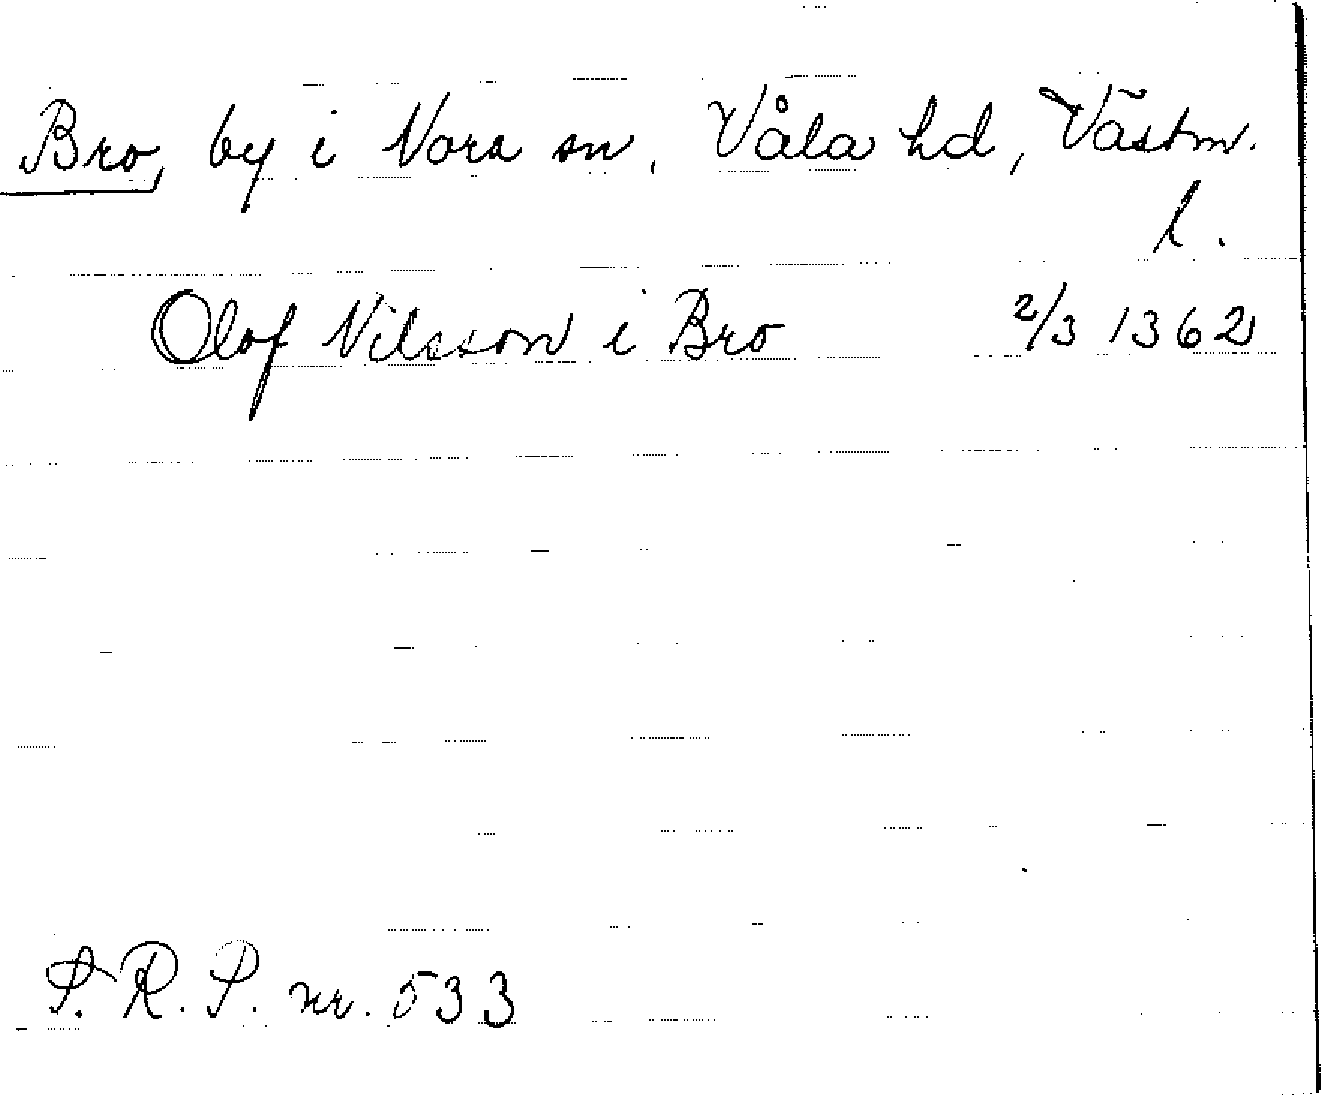 Bro, by i Nora sn, Våla hd, Västm.
l.
Olof Nilsson i Bro 2/3 1362
S.R.P. nr. 533